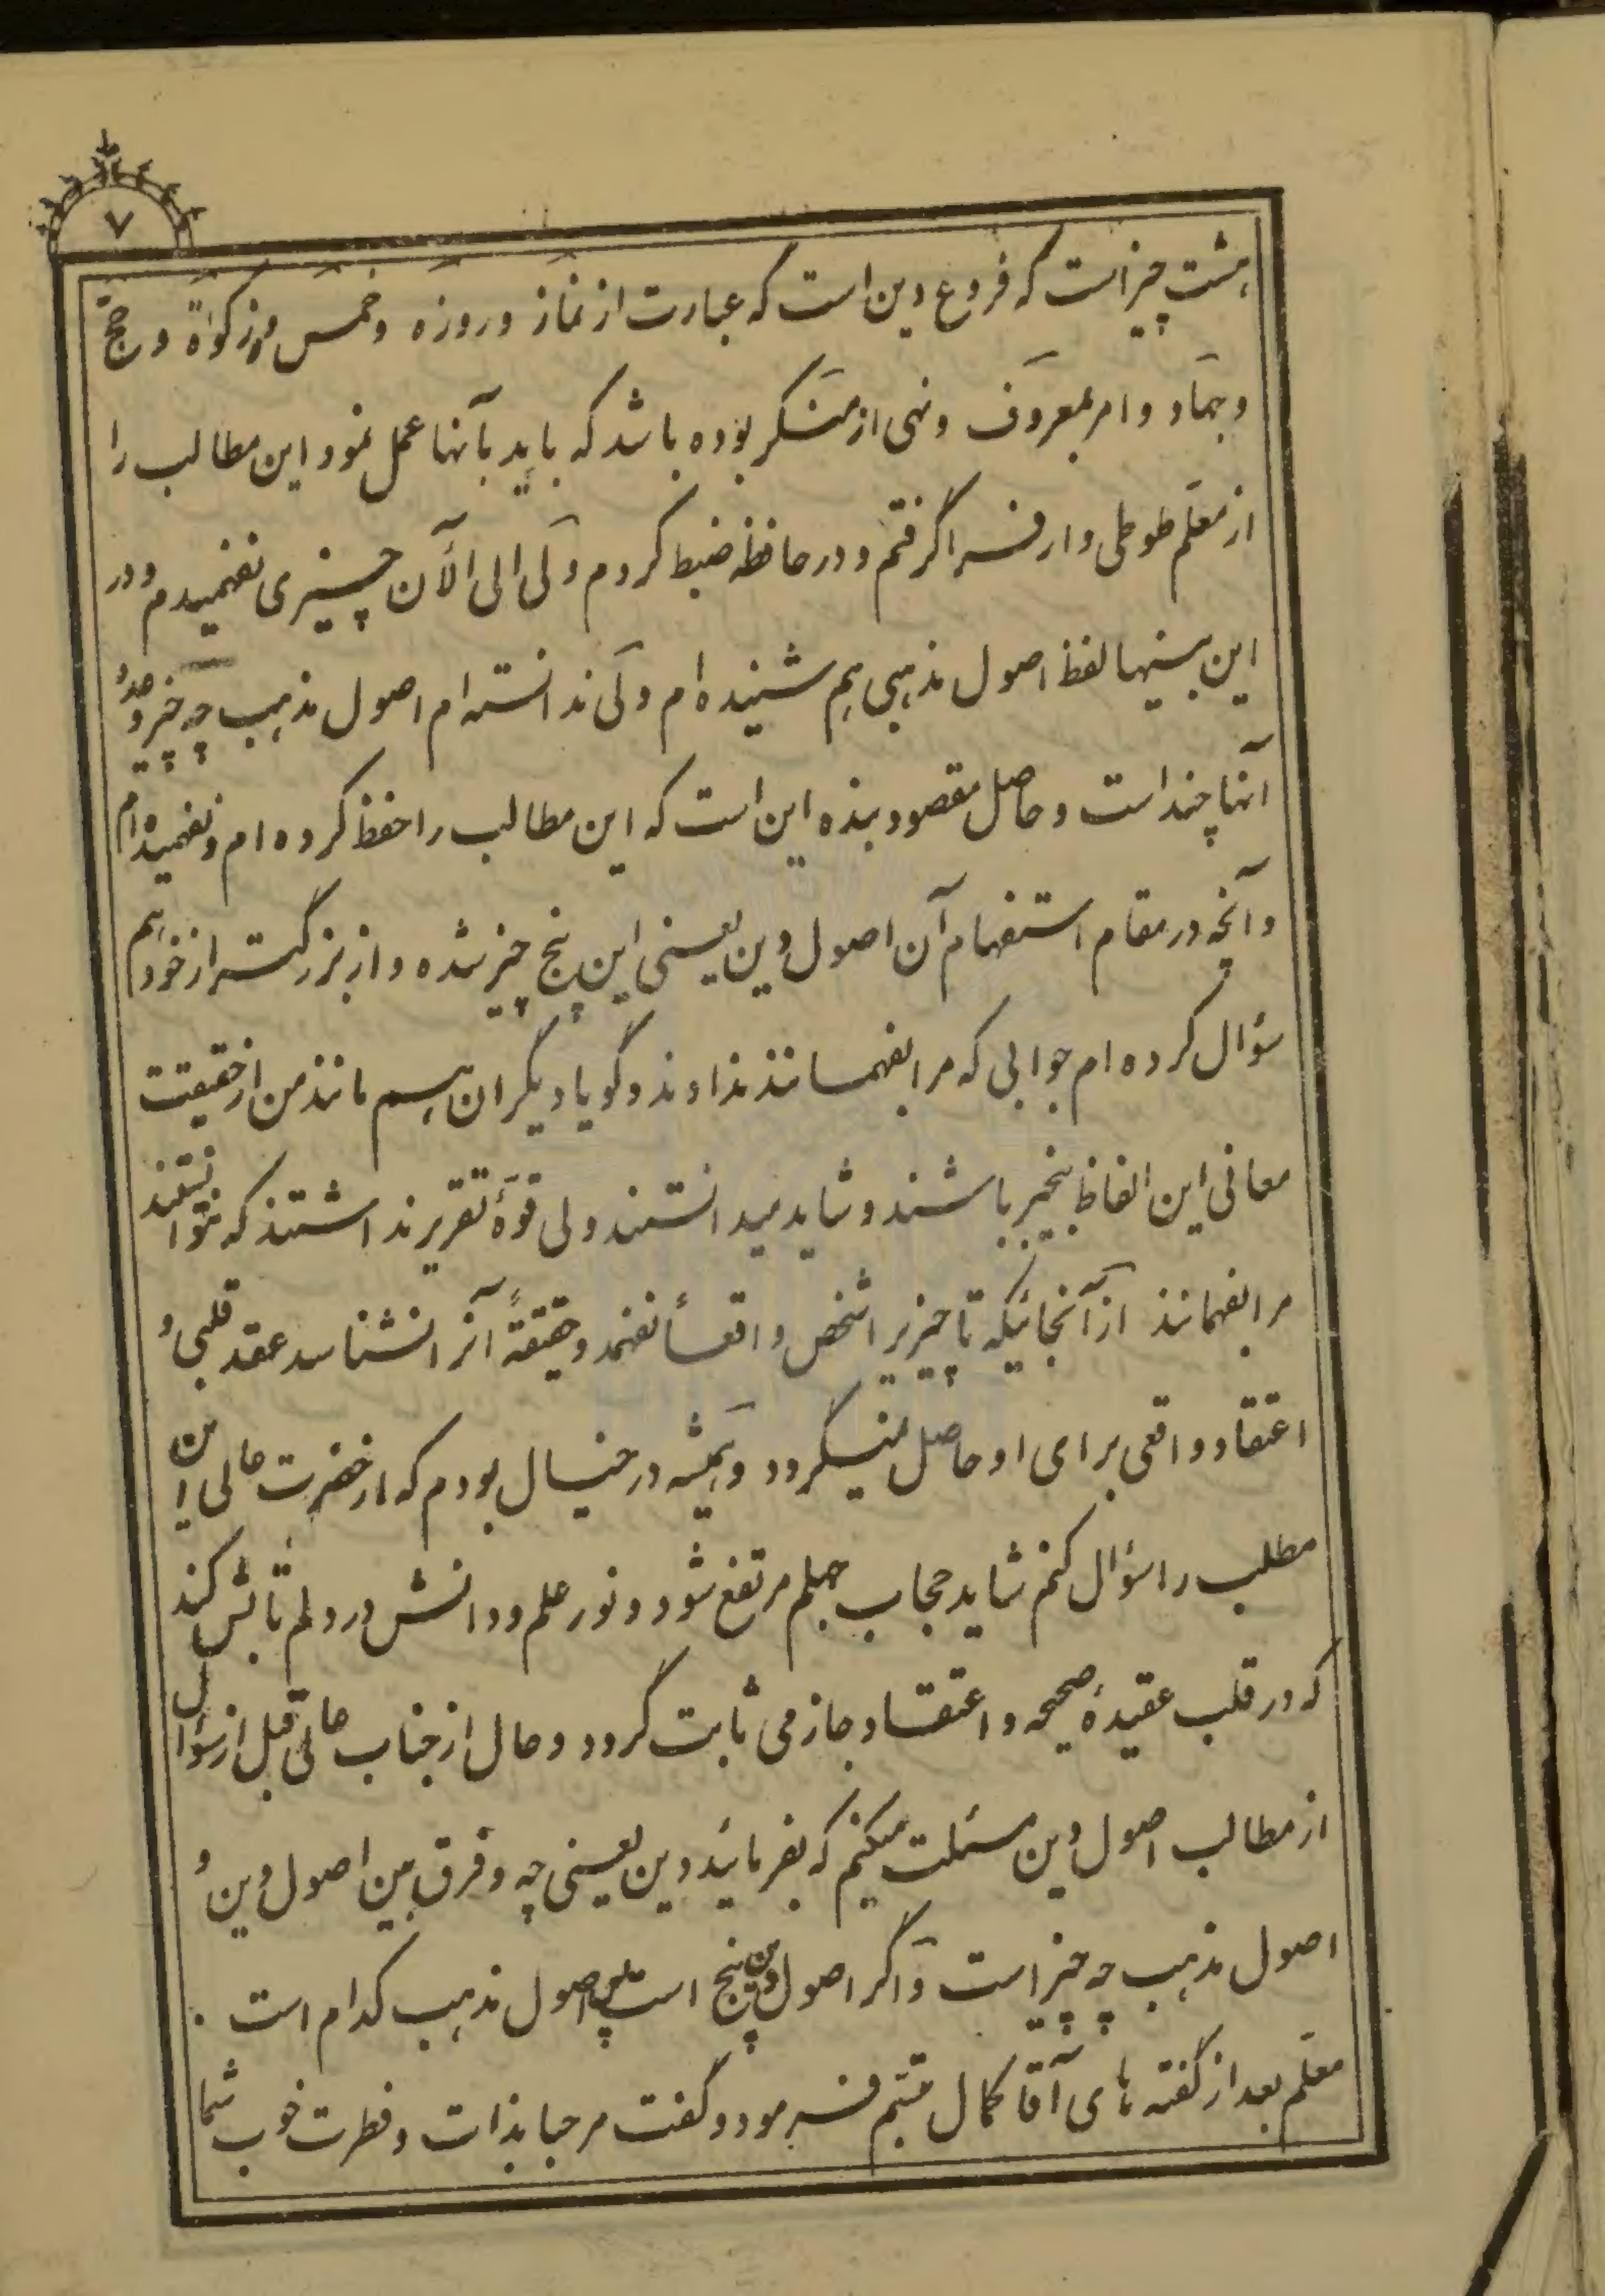 ۷
هشت چیز است که فروع دین است که عبارت از نماز و روزه و خمس و زکوة و حجّ
و جهاد و امر بمعروف و نهی از منکر بوده باشد که باید بآنها عمل نمود این مطالب را
از معلّم طوطی وار فرا گرفتم و در حافظه ضبط کردم ولی الی الآن چیزی نفهمیدم و در
این بینها لفظ اصول مذهبی هم شنیده ام ولی ندانسته ام اصول مذهب چه چیز و عدد
آنها چند است و حاصل مقصود بنده این است که این مطالب را حفظ کرده ام و نفهمیده ام
و آنچه در مقام استفهام آن اصول دین یعنی این پنج چیز شده و از بزرگتر از خود هم
سؤال کرده ام جوابی که مرا بفهمانند ندادند و گویا دیگران هم مانند من از حقیقت
معانی این الفاظ بیخبر باشند و شاید میدانستند ولی قوّهٔ تقریر نداشتند که بتوانند
مرا بفهمانند از آنجائیکه تا چیزیرا شخص واقعاً نفهمد و حقیقةً آنرا نشناسد عقد قلبی و
اعتقاد واقعی برای او حاصل نمیگردد و همیشه در خیال بودم که از حضرت عالی این
مطلب را سؤال کنم شاید حجاب جهلم مرتفع شود و نور علم و دانش در دلم تابش کند
که در قلب عقیدهٔ صحیحه و اعتقاد جازمی ثابت گردد و حال از جناب عالی قبل از سؤال
از مطالب اصول دین مسئلت میکنم که بفرمائید دین یعنی چه و فرق بین اصول دین و
اصول مذهب چه چیز است و اگر اصول دین پنج است پس اصول مذهب کدام است .
معلّم بعد از گفته های آقا کمال تبسّم فرمود و گفت مرحبا بذات و فطرت خوب شما